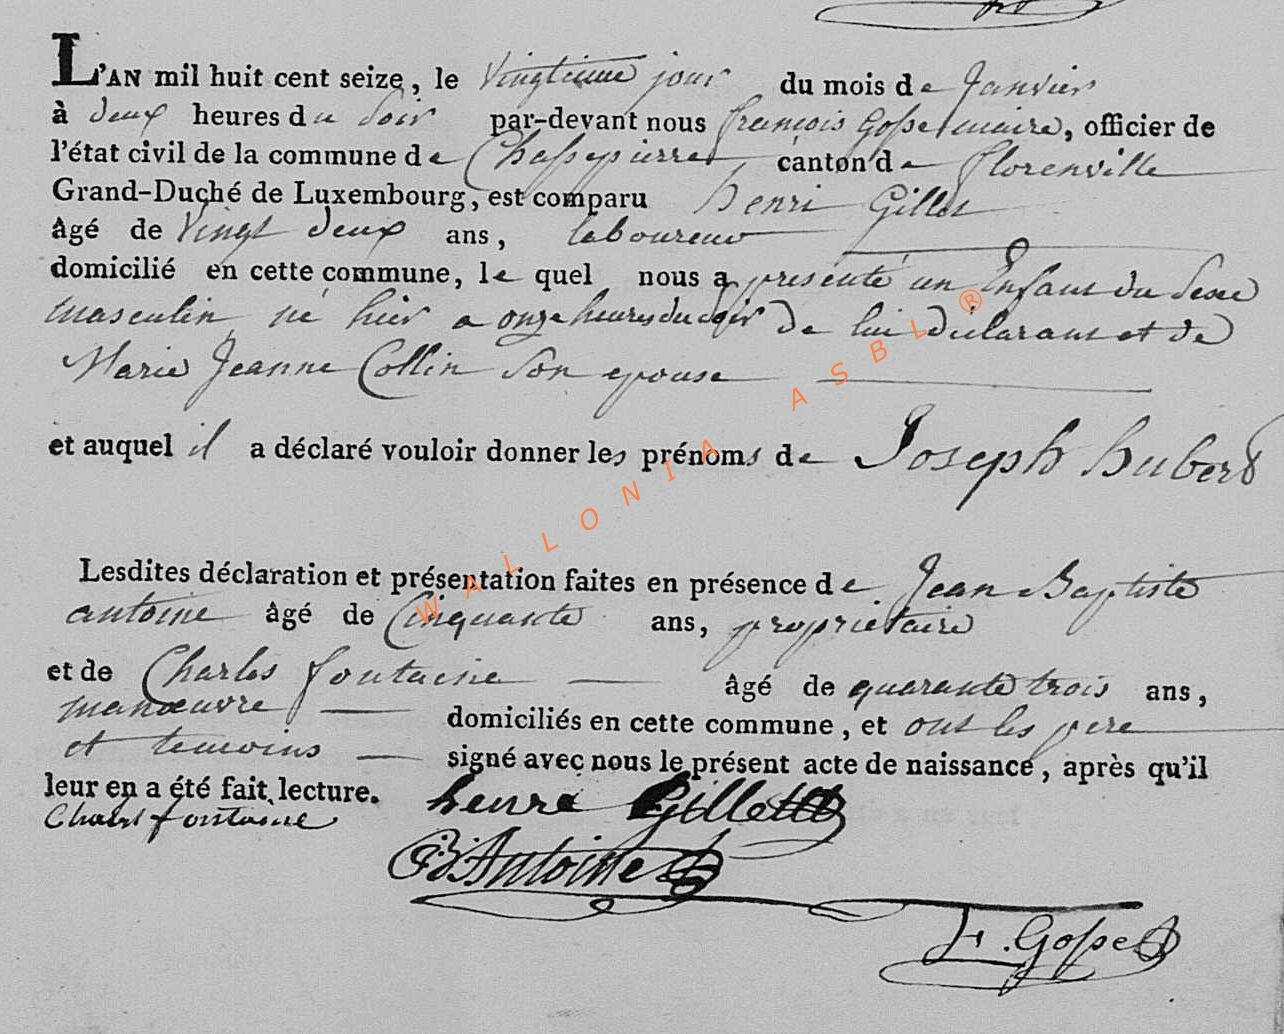 L'AN mil huit cent seize, le Vingtieme jour du mois de Janvier
à deux heures du Soir par-devant nous françois Gosse maire, officier de
l'état civil de la commune de Chassepierre canton de florenville
Grand-Duché de Luxembourg, est comparu henri Gillet
âgé de Vingt deux ans, laboureur
domicilié en cette commune, le quel nous a presenté un Enfant du Sexe
masculin né hier a onze heures du soir de lui déclarant et de
Marie Jeanne Collin Son epouse
et auquel il a déclaré vouloir donner les prénoms de Joseph hubert
Lesdites déclaration et présentation faites en présence de Jean Baptiste
antoine âgé de Cinquante ans, proprietaire
et de Charles fontaine âgé de quarante trois ans,
manœuvre domiciliés en cette commune, et ont les pere
et temoins signé avec nous le présent acte de naissance, après qu'il
leur en a été fait lecture. henri Gillet
Charles fontaine
Antoine
F. Gosse
WALLONIA ASBL ®